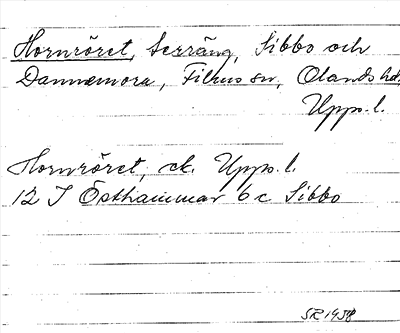 Hornröret, Terräng, Sibbo och
Dannemora, Films sn, Olands hd,
Upps. l.
Hornröret, ek. Upps. l.
12 I Östhammar 6 c Sibbo
SR 1958